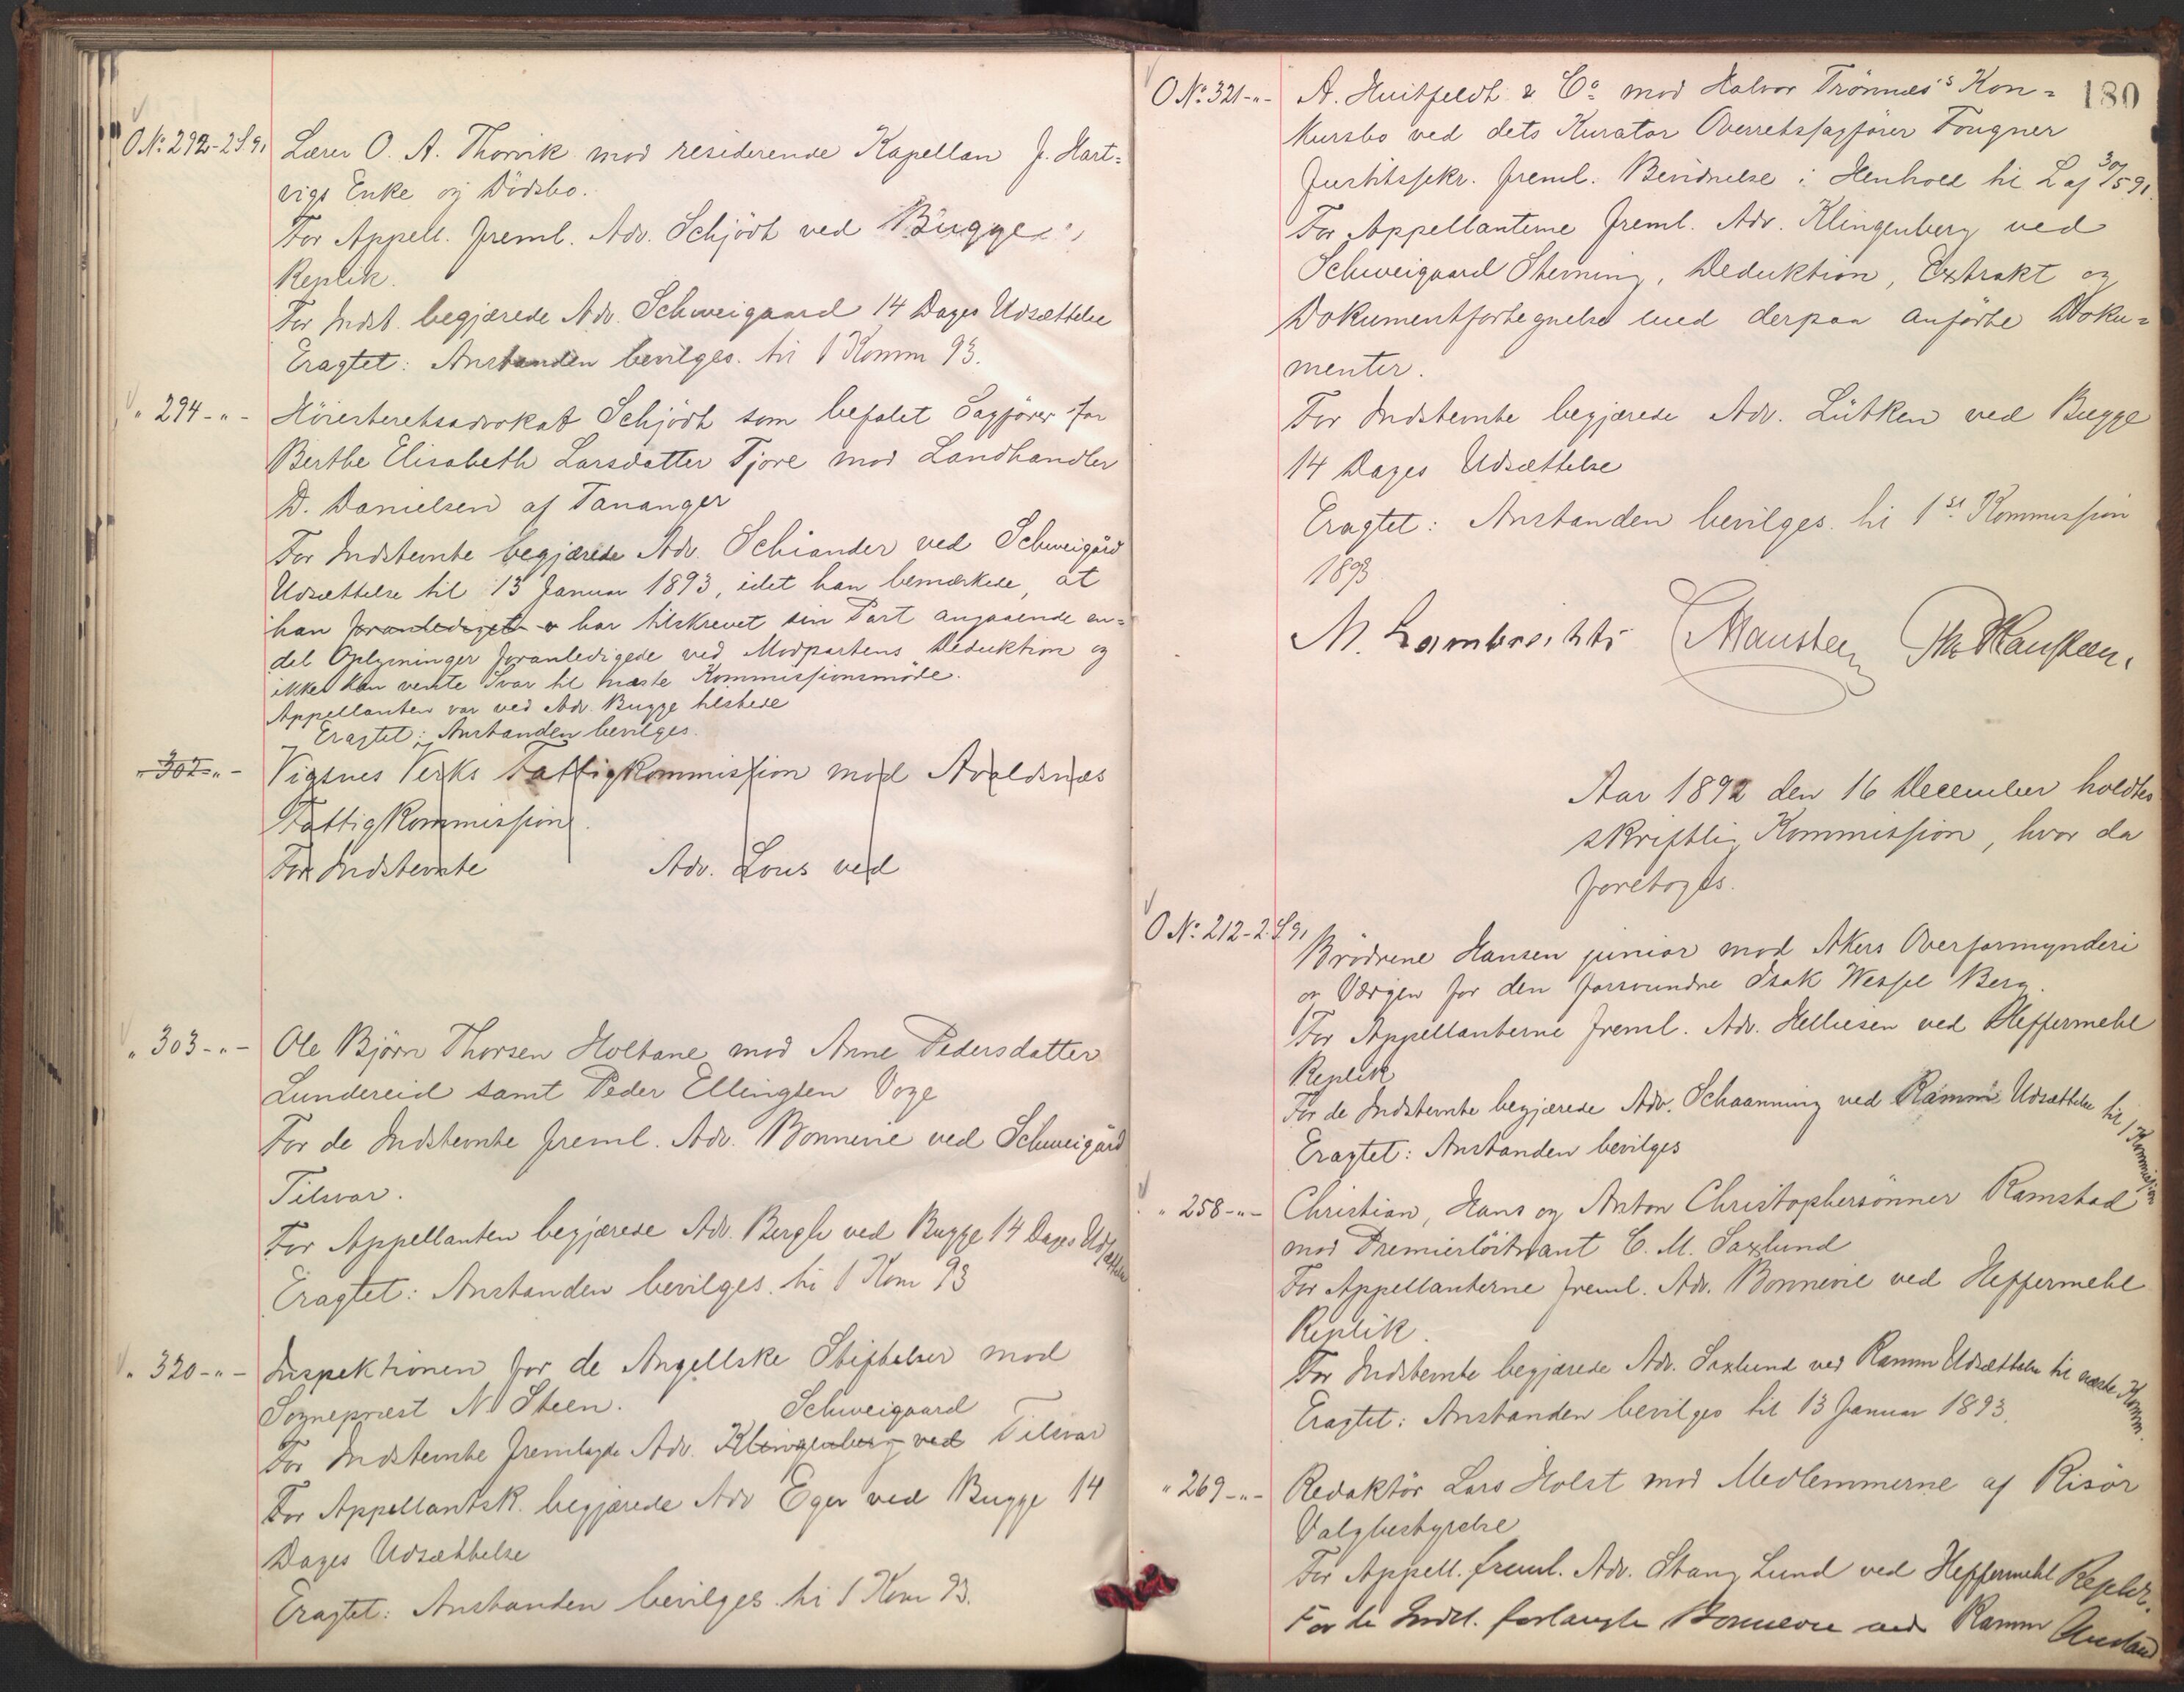 O.No. 292-2S91 Lærer O. A. Thorvik mod residerende Kapellan J. Hart-
vigs Enke og Dödsbo.
For Appell. freml. Adv. Schjödt ved Bugge
Replik.
For Indst. begjærede Adv. Schweigaard 14 Dages Udsættelse
Eragtet: Anstanden bevilges. til 1 Komm 93.
" 294-"- Höiesteretsadvokat Schjödt som befalet Sagförer for
Berthe Elisabeth Larsdatter Tjore mod Landhandler
D. Danielsen af Tananger
For Indstevnte begjærede Adv. Schiander ved Schweigård
Udsættelse til 13 Januar 1893, idet han bemærkede, at
han foranlediget har tilskrevet sin Part angaaende en-
del Oplysninger foranledigede ved Modpartens Deduktion og
ikke kan vente Svar til næste Kommissionsmöde.
Appellanten var ved Adv. Bugge tilstede
Eragtet: Anstanden bevilges.
" 302-"- Vigsnes Verks Fattigkommission mod Avaldsnæs
Fattigkommission.
For Indstevnte Adv. Lous ved
" 303-"- Ole Björn Thorsen Holtane mod Anne Pedersdatter
Lundereid samt Peder Ellingsen Voge
For de Indstevnte freml. Adv. Bonnevie ved Schweigård
Tilsvar.
For Appellanten begjærede Adv. Bergh ved Bugge 14 Dages Udsættelse
Eragtet: Anstanden bevilges. til 1 Kom 93
" 320-"- Inspektionen for de Angellske Stiftelser mod
Sognepræst N Steen.
Schweigaard
For Indstevnte fremlagde Adv. Klingenberg ved Tilsvar
For Appellantsk. begjærede Adv Eger ved Bugge 14
Dages Udsættelse
Eragtet: Anstanden bevilges. til 1 Kom 93.
180
O No. 321-"- A. Huitfeldt & Co. mod Halvor Trönnæs's Kon-
kursbo ved dets Kurator Overretssagförer Fougner
Justitssekr. freml. Bevidnelse i Henhold til L af 30/5 91.
For Appellanterne freml. Adv. Klingenberg ved
Schweigaard Stevning, Deduktion, Extrakt og
Dokumentfortegnelse med derpaa anförte Doku-
menter.
For Indstevnte begjærede Adv. Lütken ved Bugge
14 Dages Udsættelse
Eragtet: Anstanden bevilges. til 1ste Kommission
1893
M. Lambrechts Th Hansteen.
Aar 1892 den 16 December holdtes
skriftlig Kommission, hvor da
foretoges.
O No. 212-2.S91
Brödrene Hansen junior mod Akers Overformynderi
og Værgen for den forsvundne Isak Wessel Berg.
For Appellanterne freml. Adv. Helliesen ved Heffermehl
Replik
For de Indstevnte begjærede Adv. Schaanning ved Ramm Udsættelse til 1 Kommission
Eragtet: Anstanden bevilges
" 258-"- Christian, Hans og Anton Christophersönner Ramstad
mod Premierlöitnant C. M. Saxlund
For Appellanterne freml. Adv. Bonnevie ved Heffermehl
Replik.
For Indstevnte begjærede Adv. Saxlund ved Ramm Udsættelse til næste Komm.
Eragtet: Anstanden bevilges til 13 Januar 1893.
" 269-"- Redaktör Lars Holst mod Medlemmerne af Risör
Valgbestyrelse
For Appell. freml. Adv. Stang Lund ved Heffermehl Replik.
For de Indst. forlangte Bonnevie ved Ramm Anstand